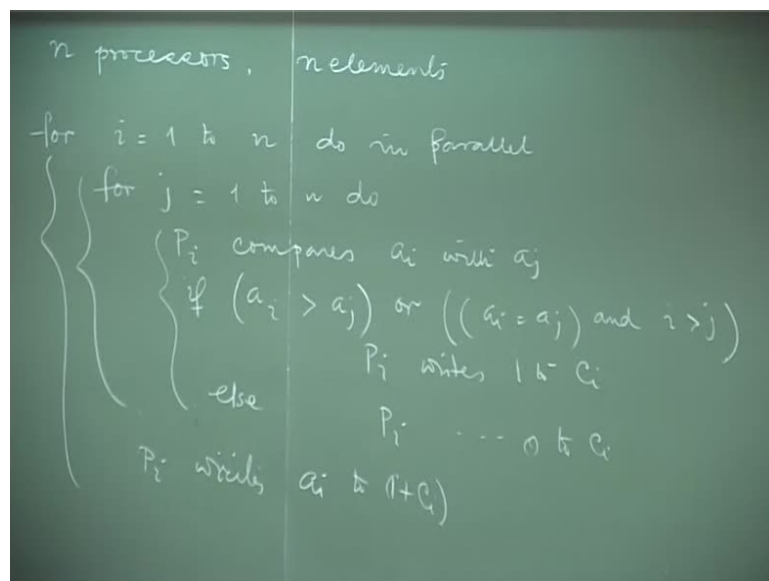 n processors, n elements
for i = 1 to n do in parallel
for j = 1 to n do
Pi compares ai with aj
if (ai > aj) or ((ai = aj) and i > j)
Pi writes 1 to Ci
else
Pi .... 0 to Ci
Pi writes ai to (1+Ci)